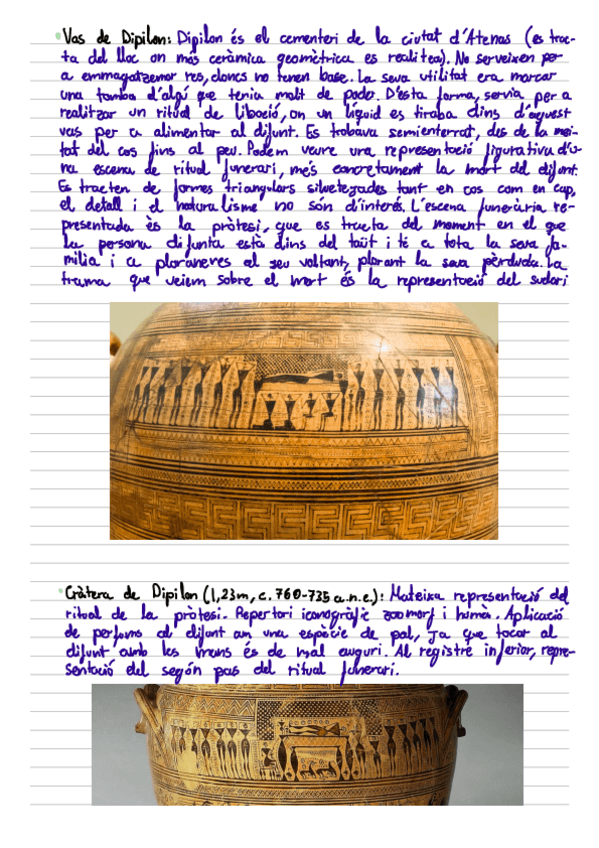 Vas de Dipilon: Dipilon és el cementeri de la ciutat d'Atenas (es trac-
ta del lloc on més ceràmica geomètrica es realitea). No serveixen per
a emmagatzemar res, doncs no tenen base. La seva utilitat era marcar
una tomba d'algú que tenia molt de poder. D'esta forma, servia per a
realitzar un ritual de libació, on un líquid es tirava dins d'aquest
vas per a alimentar al difunt. Es trobava semienterrat, des de la mei-
tat del cos fins al peu. Podem veure una representació figurativa d'u-
na escena de ritual funerari, més concretament la mort del difunt.
Es tracten de formes triangulars siluetejades tant en cos com en cap,
el detall i el naturalisme no són d'interés. L'escena funerària re-
presentada és la pròtesi, que es tracta del moment en el que
la persona difunta està dins del taüt i té a tota la seva fa-
milia i a ploraneres al seu voltant, plorant la seva pèrduda. La
trama que veiem sobre el mort és la representació del sudari
Cràtera de Dipilon (1,23m, c. 760-735 a.n.e.): Mateixa representació del
ritual de la pròtesi. Repertori iconogràfic zoomorf i humà. Aplicació
de perfums al difunt am una espècie de pal, ja que tocar al
difunt amb les mans és de mal auguri. Al registre inferior, repre-
sentació del segón pas del ritual funerari.